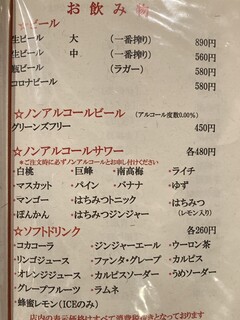 お飲み物
☆ビール
生ビール 大 (一番搾り) 890円
生ビール 中 (一番搾り) 560円
瓶ビール (ラガー) 580円
コロナビール 580円
☆ノンアルコールビール (アルコール度数0.00%)
グリーンズフリー 450円
☆ノンアルコールサワー 各480円
*ご注文時に必ずノンアルコールとお申し付けください
・白桃 ・巨峰 ・南高梅 ・ライチ
・マスカット ・パイン ・バナナ ・ゆず
・マンゴー ・はちみつトニック ・はちみつ
・ぽんかん ・はちみつジンジャー (レモン入り)
☆ソフトドリンク 各260円
・コカコーラ ・ジンジャーエール ・ウーロン茶
・リンゴジュース ・ファンタ・グレープ ・カルピス
・オレンジジュース ・カルピスソーダー ・うめソーダー
・グレープフルーツ ・ラムネ
・蜂蜜レモン(ICEのみ)
店内の表示価格はすべて消費税抜きとなっております